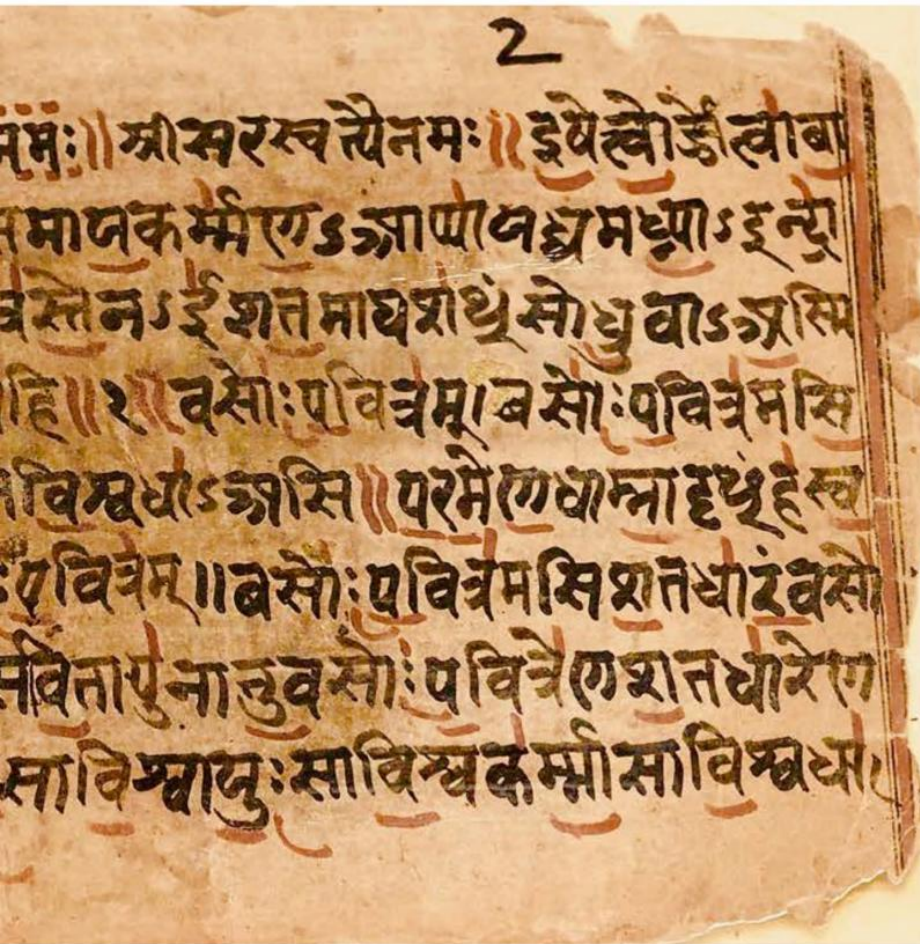 2
मः॥श्रीसरस्वत्यैनमः॥इषेत्वोर्ज्जेत्वाबा
तमायकर्म्मणऽआप्यायध्वमघ्न्याऽइन्द्रा
वस्तेनऽईशतमाघशꣳसोध्रुवाऽअस्मि
हि॥२॥वसोःपवित्रम्।बसोःपवित्रमसि
विश्वधाऽअसि॥परमेणधाम्नादृꣳहस्व
पवित्रम्॥बसोःपवित्रमसिशतधारंवसो
सवितापुनातुवसोःपवित्रेणशतधारेण
साविश्वायुःसाविश्वकर्म्मासाविश्वधा